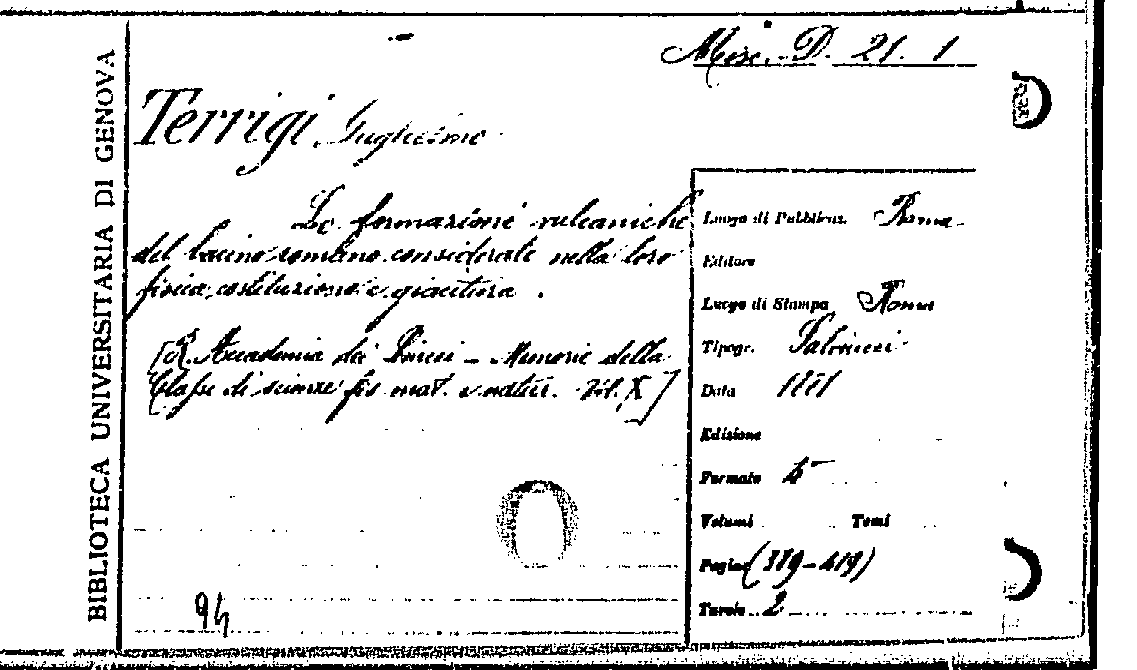 BIBLIOTECA UNIVERSITARIA DI GENOVA
Misc. D. 21. 1
Terrigi Guglielmo
Le formazioni vulcaniche
del bacino romano considerate nella loro
fisica costituzione e giacitura.
[R. Accademia dei Lincei - Memorie della
Classe di scienze fis. mat. e natur. Vol. X]
94
Luogo di Pubblicaz. Roma
Editore
Luogo di Stampa Roma
Tipogr. Salviucci
Data 1881
Edizione
Formato 4°
Volumi Tomi
Pagine (389-419)
Tavole 2